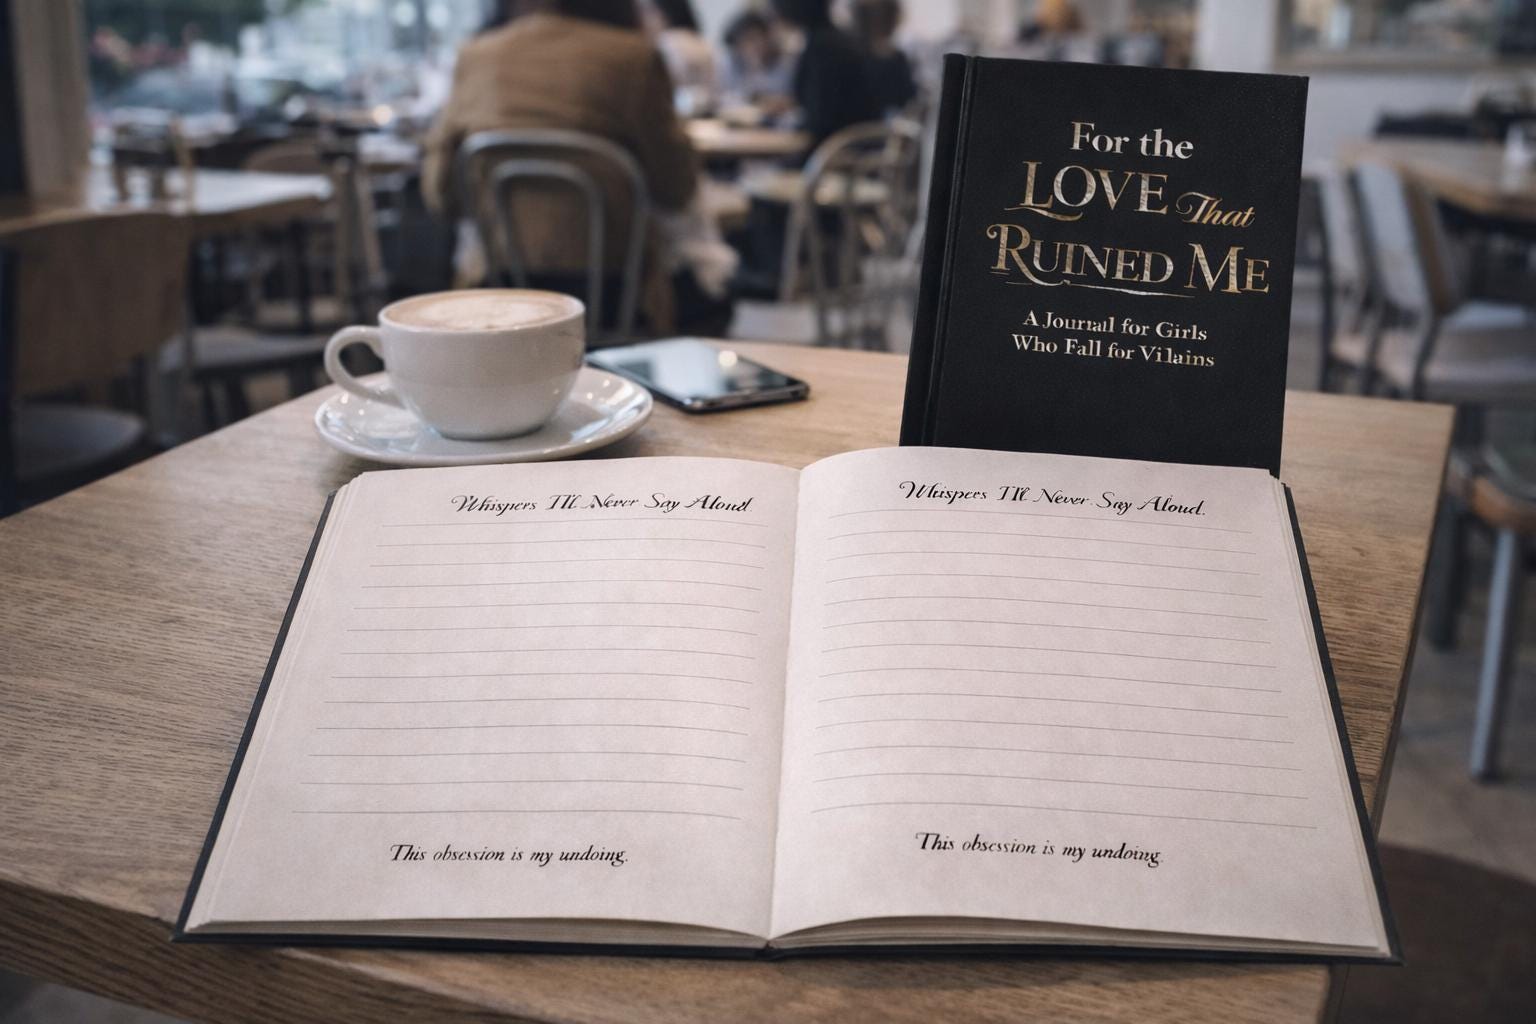 For the
LOVE That
RUINED ME
A Journal for Girls
Who Fall for Villains
Whispers I'll Never Say Aloud.
This obsession is my undoing.
Whispers I'll Never Say Aloud.
This obsession is my undoing.